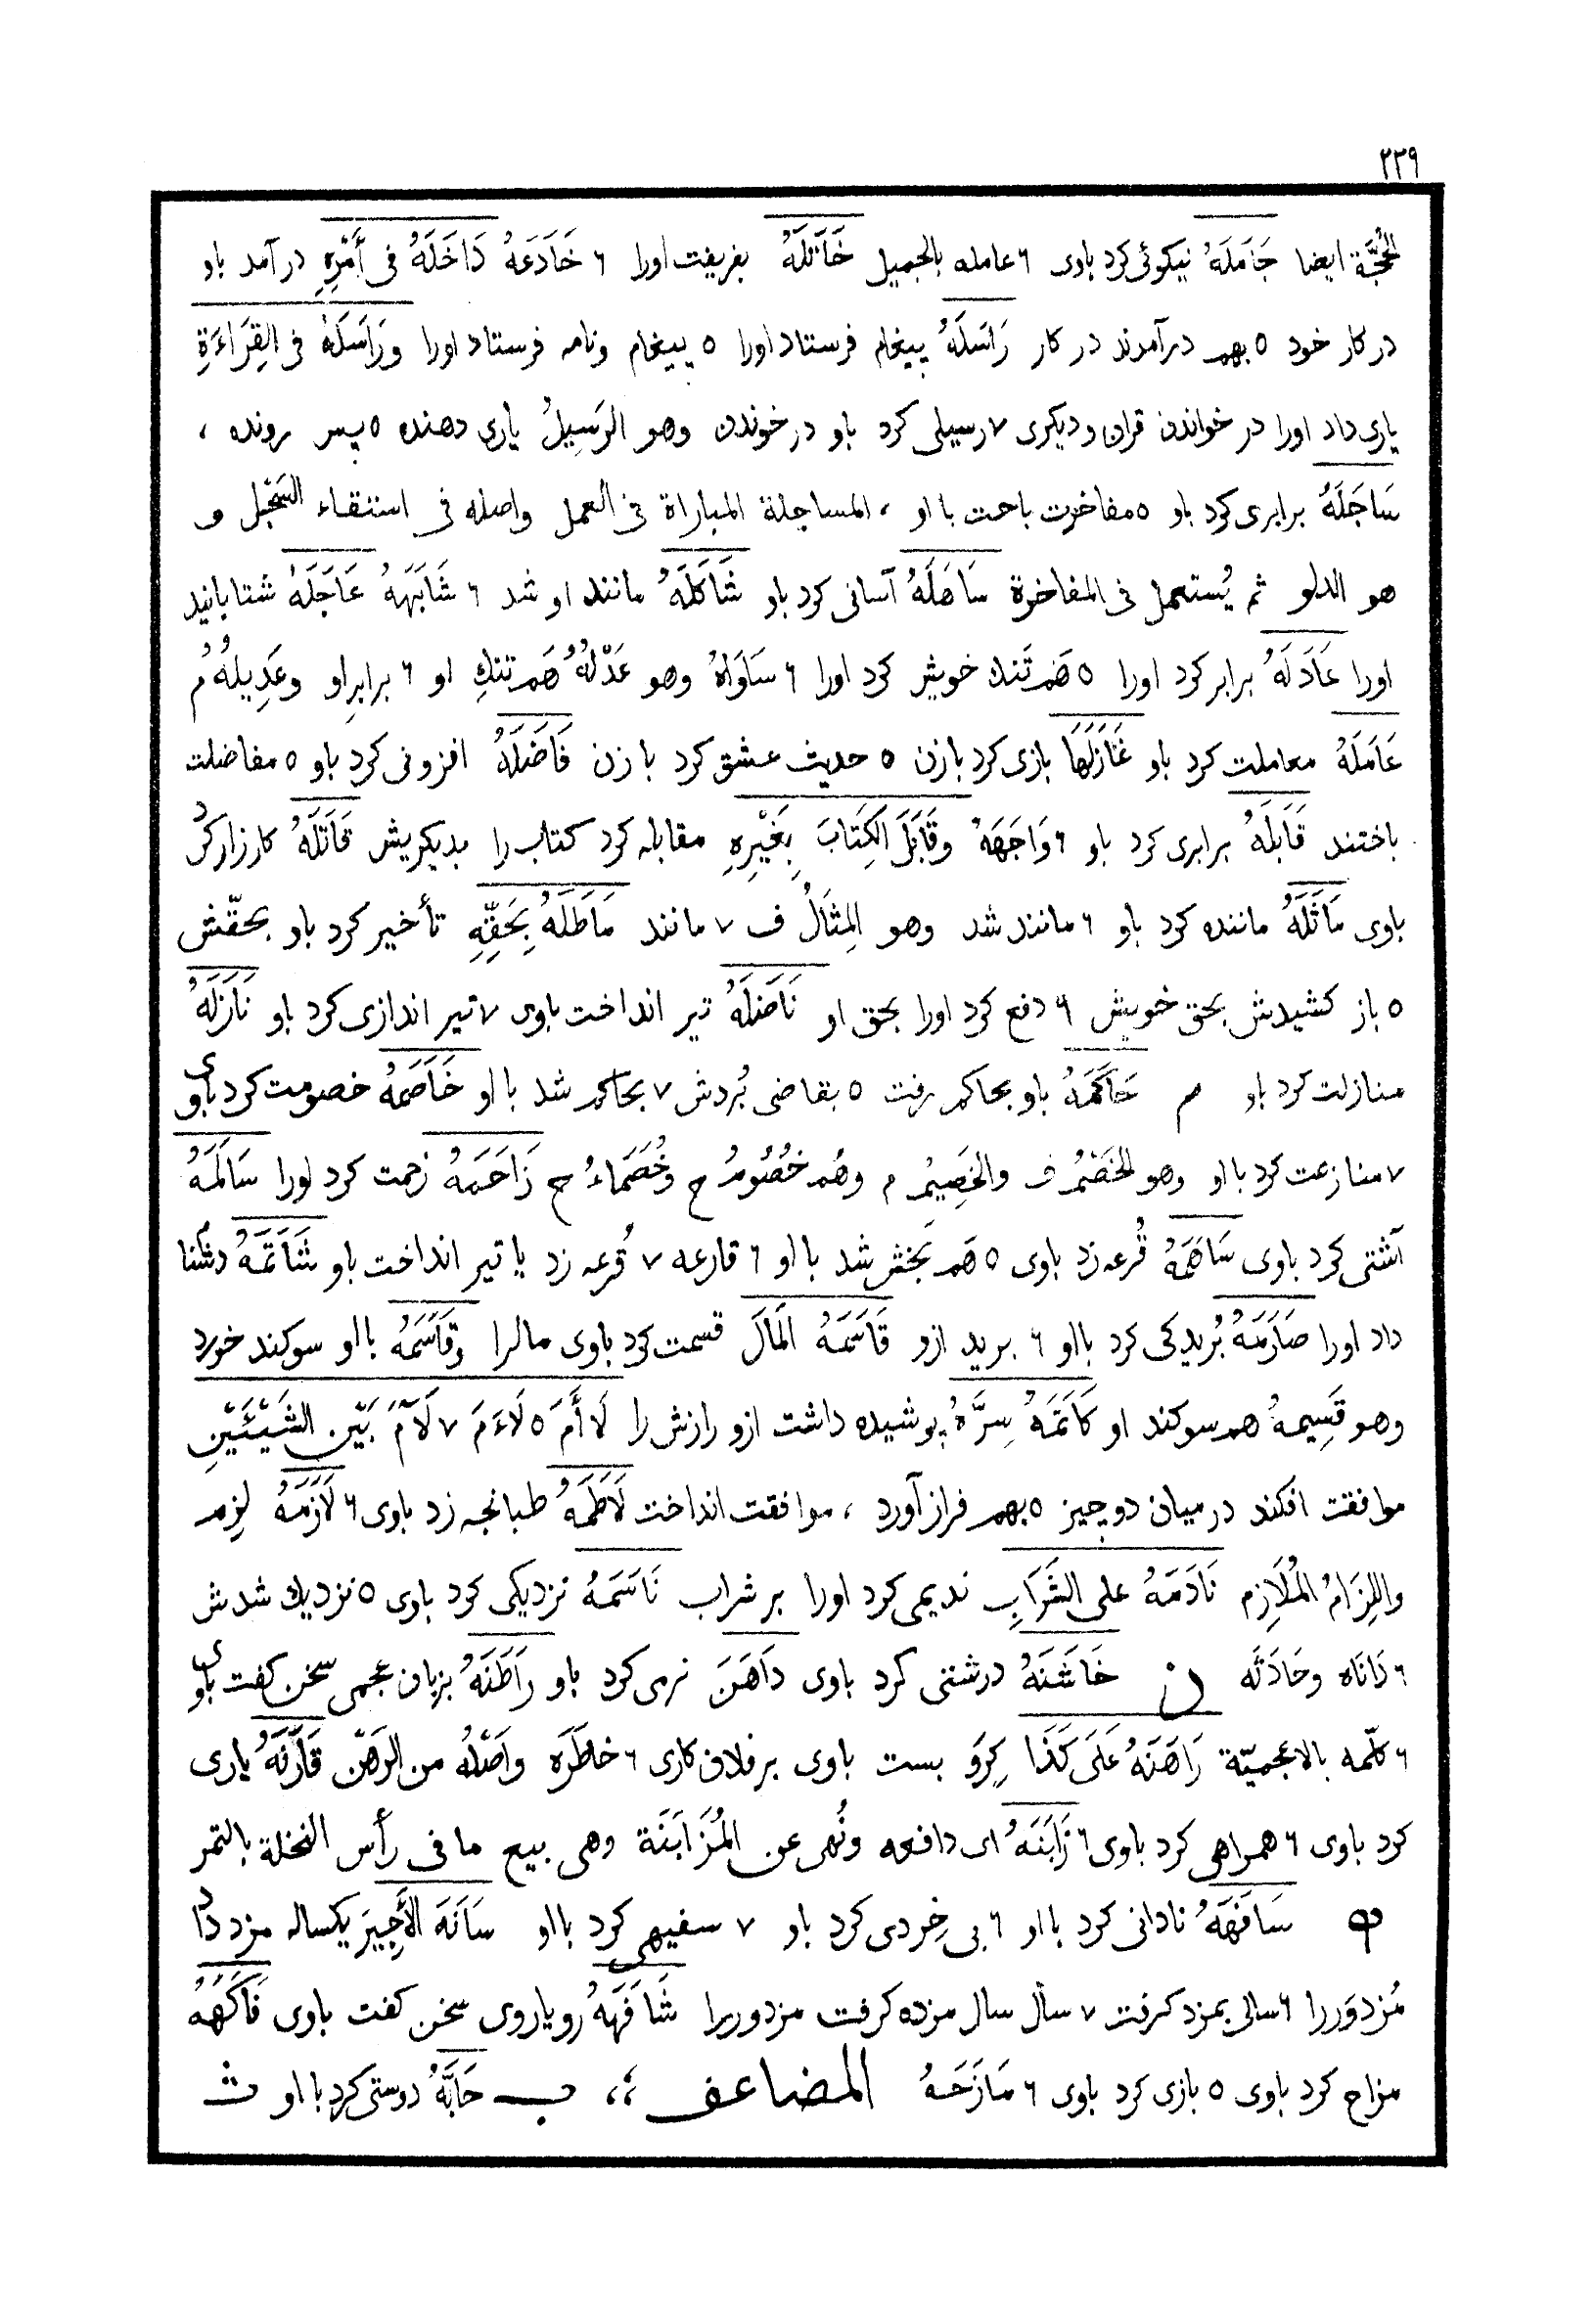 ٢٣٩
الحُجَّة ایضا جَامَلَهُ نیکوئی کرد باوی ۶ عامله بالجمیل خَاتَلَهُ بفریفت اورا ۶ خَادَعَهُ دَاخَلَهُ فی أَمْرِهِ درآمد باو
در کار خود ۵ بهم درآمدند در کار رَاسَلَهُ پیغام فرستاد اورا ۵ پیغام ونامه فرستاد اورا ورَاسَلَهُ فی القِرَاءَةِ
یاری داد اورا در خواندن قران و دیکری ۷ رسیلی کرد باو در خوندن وهو الرَسِیلُ یاری دهنده ۵ پس رونده ،
سَاجَلَهُ برابری کرد باو ۵ مفاخرت باخت با او ، المساجلة المباراة فی العمل واصله فی استقاء السَّجْل و
هو الدلو ثم یُستعمل فی المفاخرة سَاهَلَهُ آسانی کرد باو شَاکَلَهُ مانند او شد ۶ شَابَهَهُ عَاجَلَهُ شتابانید
اورا عَادَلَهُ برابر کرد اورا ۵ هَم تَنك خویش کرد اورا ۶ سَاوَاهُ وهو عَدْلُهُ هَم تنكِ او ۶ برابرِ او وعَدِیلُهُ م
عَامَلَهُ معاملت کرد باو غَازَلَهَا بازی کرد با زن ۵ حدیث عشق کرد با زن فَاضَلَهُ افزونی کرد باو ۵ مفاضلت
باختند قَابَلَهُ برابری کرد باو ۶ وَاجَهَهُ وقَابَلَ الکِتَابَ بِغَیْرِهِ مقابله کرد کتاب را بدیکریش قَاتَلَهُ کارزار کرد
باوی مَاثَلَهُ ماننده کرد باو ۶ مانند شد وهو المِثَالُ ف ۷ مانند مَاطَلَهُ بِحَقِّهِ تأخیر کرد باو بحقّش
۵ باز کشیدش بحق خویش ۶ دفع کرد اورا بحق او نَاضَلَهُ تیر انداخت باوی ۷ تیر اندازی کرد باو نَازَلَهُ
منازلت کرد باو م حَاکَمَهُ باو بحاکم رفت ۵ بقاضی بُردش ۷ بحاکم شد با او خَاصَمَهُ خصومت کرد باوی
۷ منازعت کرد با او وهو الخَصْمُ ف والخَصِیمُ م وهُم خُصُومُ ج وخُصَمَاءُ ج زَاحَمَهُ زحمت کرد اورا سَالَمَهُ
آشتی کرد باوی سَاهَمَهُ قُرعه زد باوی ۵ هَم بَخش شد با او ۶ قارعه ۷ قُرعه زد یا تیر انداخت باو شَاتَمَهُ دشنام
داد اورا صَارَمَهُ بُریدکی کرد با او ۶ برید ازو قَاسَمَهُ المَالَ قسمت کرد باوی مالرا وقَاسَمَهُ با او سوکند خورد
وهو قَسِیمهُ هم سوکند او کَاتَمَهُ سِرَّهُ پوشیده داشت ازو رازش را لَا أَمَ ۵ لَاءَمَ ۷ لَآمَ بَیْن الشَیْئَیْنِ
موافقت افکند در میان دو چیز ۵ بهم فراز آورد ، موافقت انداخت لَاطَمَهُ طبانجه زد باوی ۶ لَازَمَهُ لزم
واللِزَامُ المُلَازِم نَادَمَهُ علی الشَرَابِ ندیمی کرد اورا بر شراب نَاسَمَهُ نزدیکی کرد باوی ۵ نزدیك شدش
۶ دَانَاه وحَادَثَه ن خَاشَنَهُ درشتی کرد باوی دَاهَنَ نرمی کرد باو رَاطَنَهُ بزبان عجمی سخن کفت باوی
۶ کلّمه بالاعجمیّة رَاهَنَهُ عَلَی کَذَا کِرَو بست باوی بر فلان کاری ۶ خاطَرَه واَصْلُهُ من الرَهْن قَارَنَهُ یاری
کرد باوی ۶ همراهی کرد باوی ۶ زَابَنَهُ ای دافعه ونُهی عن المُزَابَنَة وهی بیع ما فی رأس النخلة بالتمر
ه سَافَهَهُ نادانی کرد با او ۶ بی خِردی کرد باو ۷ سفیهی کرد با او سَانَهَ الأَجِیرَ یکساله مزد داد
مُزدوَررا ۶ سالی بمزد کرفت ۷ سال سال مزده کرفت مزدوررا شَافَهَهُ رویاروی سخن کفت باوی فَاکَهَهُ
مزاح کرد باوی ۵ بازی کرد باوی ۶ مَازَحَهُ المضاعف ،، ب حَابَّهُ دوستی کرد با او ث